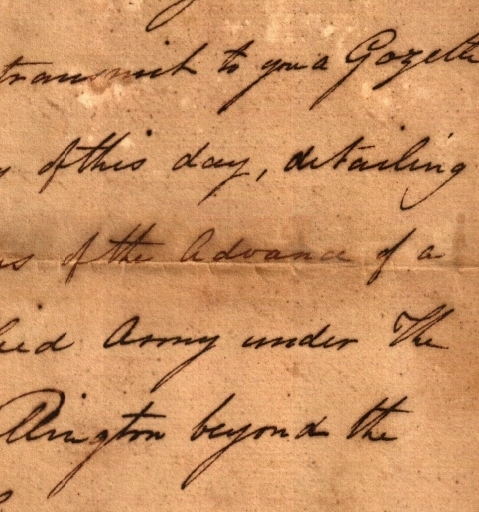 transmit to you a Gazette
of this day, detailing
of the Advance of a
Army under The
beyond the